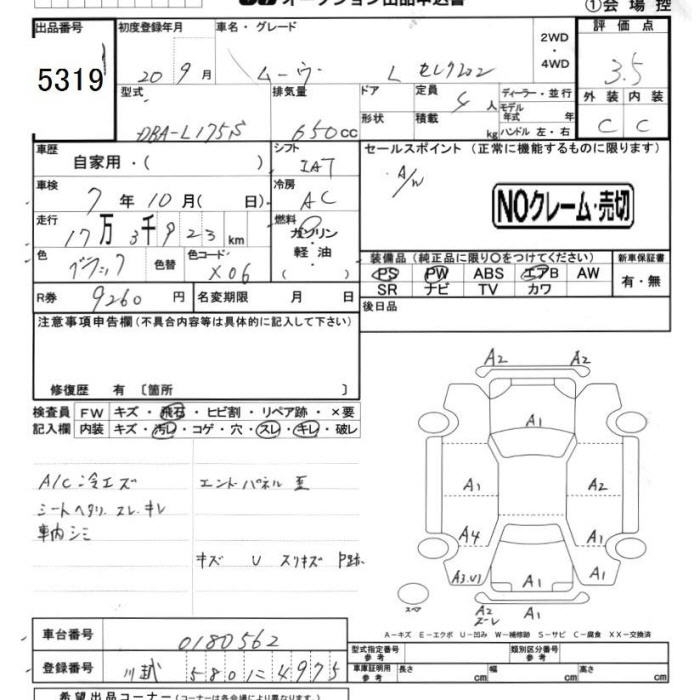 オークション出品申込書
①会場控
出品番号 5319
初度登録年月 20 9月
車名・グレード ムーヴ L セレクション
2WD・4WD
評価点 3.5
外装 C 内装 C
型式 DBA-L175S
排気量 650cc
ドア 形状
定員 4人
積載 kg
ディーラー・並行
モデル年式 年
ハンドル 左・右
車歴 自家用・( )
シフト IAT
セールスポイント(正常に機能するものに限ります)
A/W
NOクレーム・売切
車検 7年10月( 日)
冷房 AC
走行 17万3千923km
燃料 ガソリン・軽油・( )
色 ブラック 色替
色コード X06
装備品(純正品に限り○をつけてください)
PS PW ABS エアB AW
SR ナビ TV カワ
新車保証書 有・無
R券 9260円
名変期限 月 日
後日品
注意事項申告欄(不具合内容等は具体的に記入して下さい)
修復歴 有〔箇所 〕
検査員記入欄
FW キズ・飛石・ヒビ割・リペア跡・×要
内装 キズ・汚レ・コゲ・穴・スレ・キレ・破レ
A/C冷エズ
シートヘタリ スレ・キレ
車内シミ
エンドパネル歪
キズ U スリキズ P跡
A2 A2
A1
A1
A1 A2
A4 A1
A3.U1 A1 A1
A2 ズレ A1
スペア
A-キズ E-エクボ U-凹み W-補修跡 S-サビ C-腐食 XX-交換済
車台番号 0180562
登録番号 川越 580 に 4975
型式指定番号 参考
類別区分番号 参考
車庫証明用 参考 長さ cm 幅 cm 高さ cm
希望出品コーナー(コーナーは各会場により異なります。)